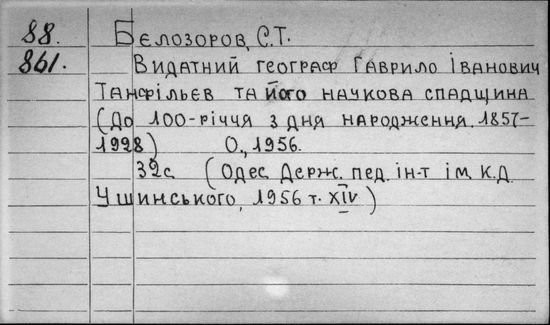 88. Бєлозоров, С.Т.
861. Видатний географ Гаврило Іванович
Танфільєв та його наукова спадщина
(До 100-річчя з дня народження. 1857-
1928) О, 1956.
32с (Одес. Держ. пед. ін-т ім. К.Д.
Ушинського, 1956 т. XIV)